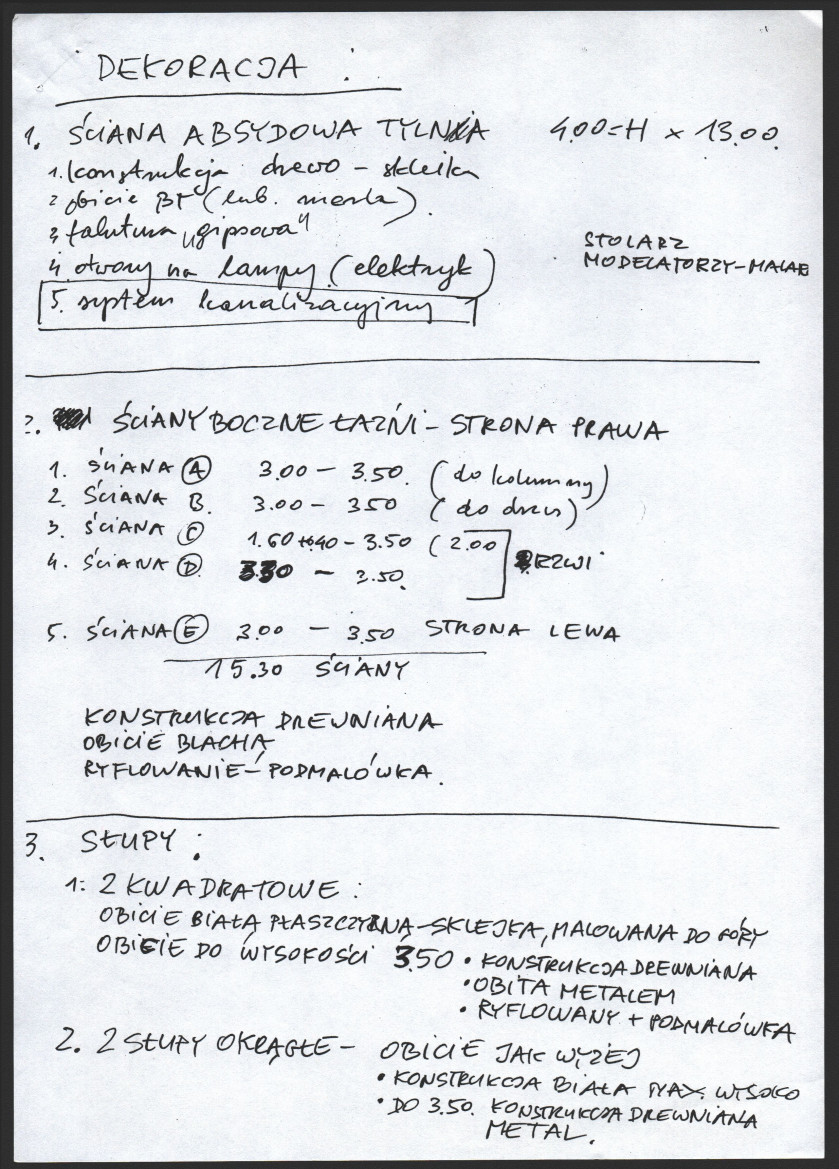 DEKORACJA :
1. ŚCIANA ABSYDOWA TYLNA 4.00=H x 13.00.
1. konstrukcja drewo – sklejka
2 obicie (lub.
3 faktura „gipsowa"
4. otwory na lampy (elektryk)
STOLARZ
MODELATORZY-MALAR
5. system kanalizacyjny
2. ŚCIANY BOCZNE ŁAŹNI – STRONA PRAWA
1. ŚCIANA A 3.00 – 3.50. (do kolumny)
2. ŚCIANA B. 3.00 – 350 (do drzwi)
3. ŚCIANA C 1.60 – 3.50 (2.00
4. ŚCIANA D. 3.30 – 3.50. DRZWI
5. ŚCIANA E 3.00 – 3.50 STRONA LEWA
15.30 ŚCIANY
KONSTRUKCJA DREWNIANA
OBICIE BLACHĄ
RYFLOWANIE – PODMALÓWKA.
3. SŁUPY :
1: 2 KWADRATOWE :
OBICIE BIAŁĄ PŁASZCZYZNĄ – SKLEJKA, MALOWANA DO GÓRY
OBICIE DO WYSOKOŚCI 3.50 • KONSTRUKCJA DREWNIANA
• OBITA METALEM
• RYFLOWANY + PODMALÓWKA
2. 2 SŁUPY OKRĄGŁE – OBICIE JAK WYŻEJ
• KONSTRUKCJA BIAŁA MAX. WYSOKO
• DO 3.50. KONSTRUKCJA DREWNIANA
METAL.